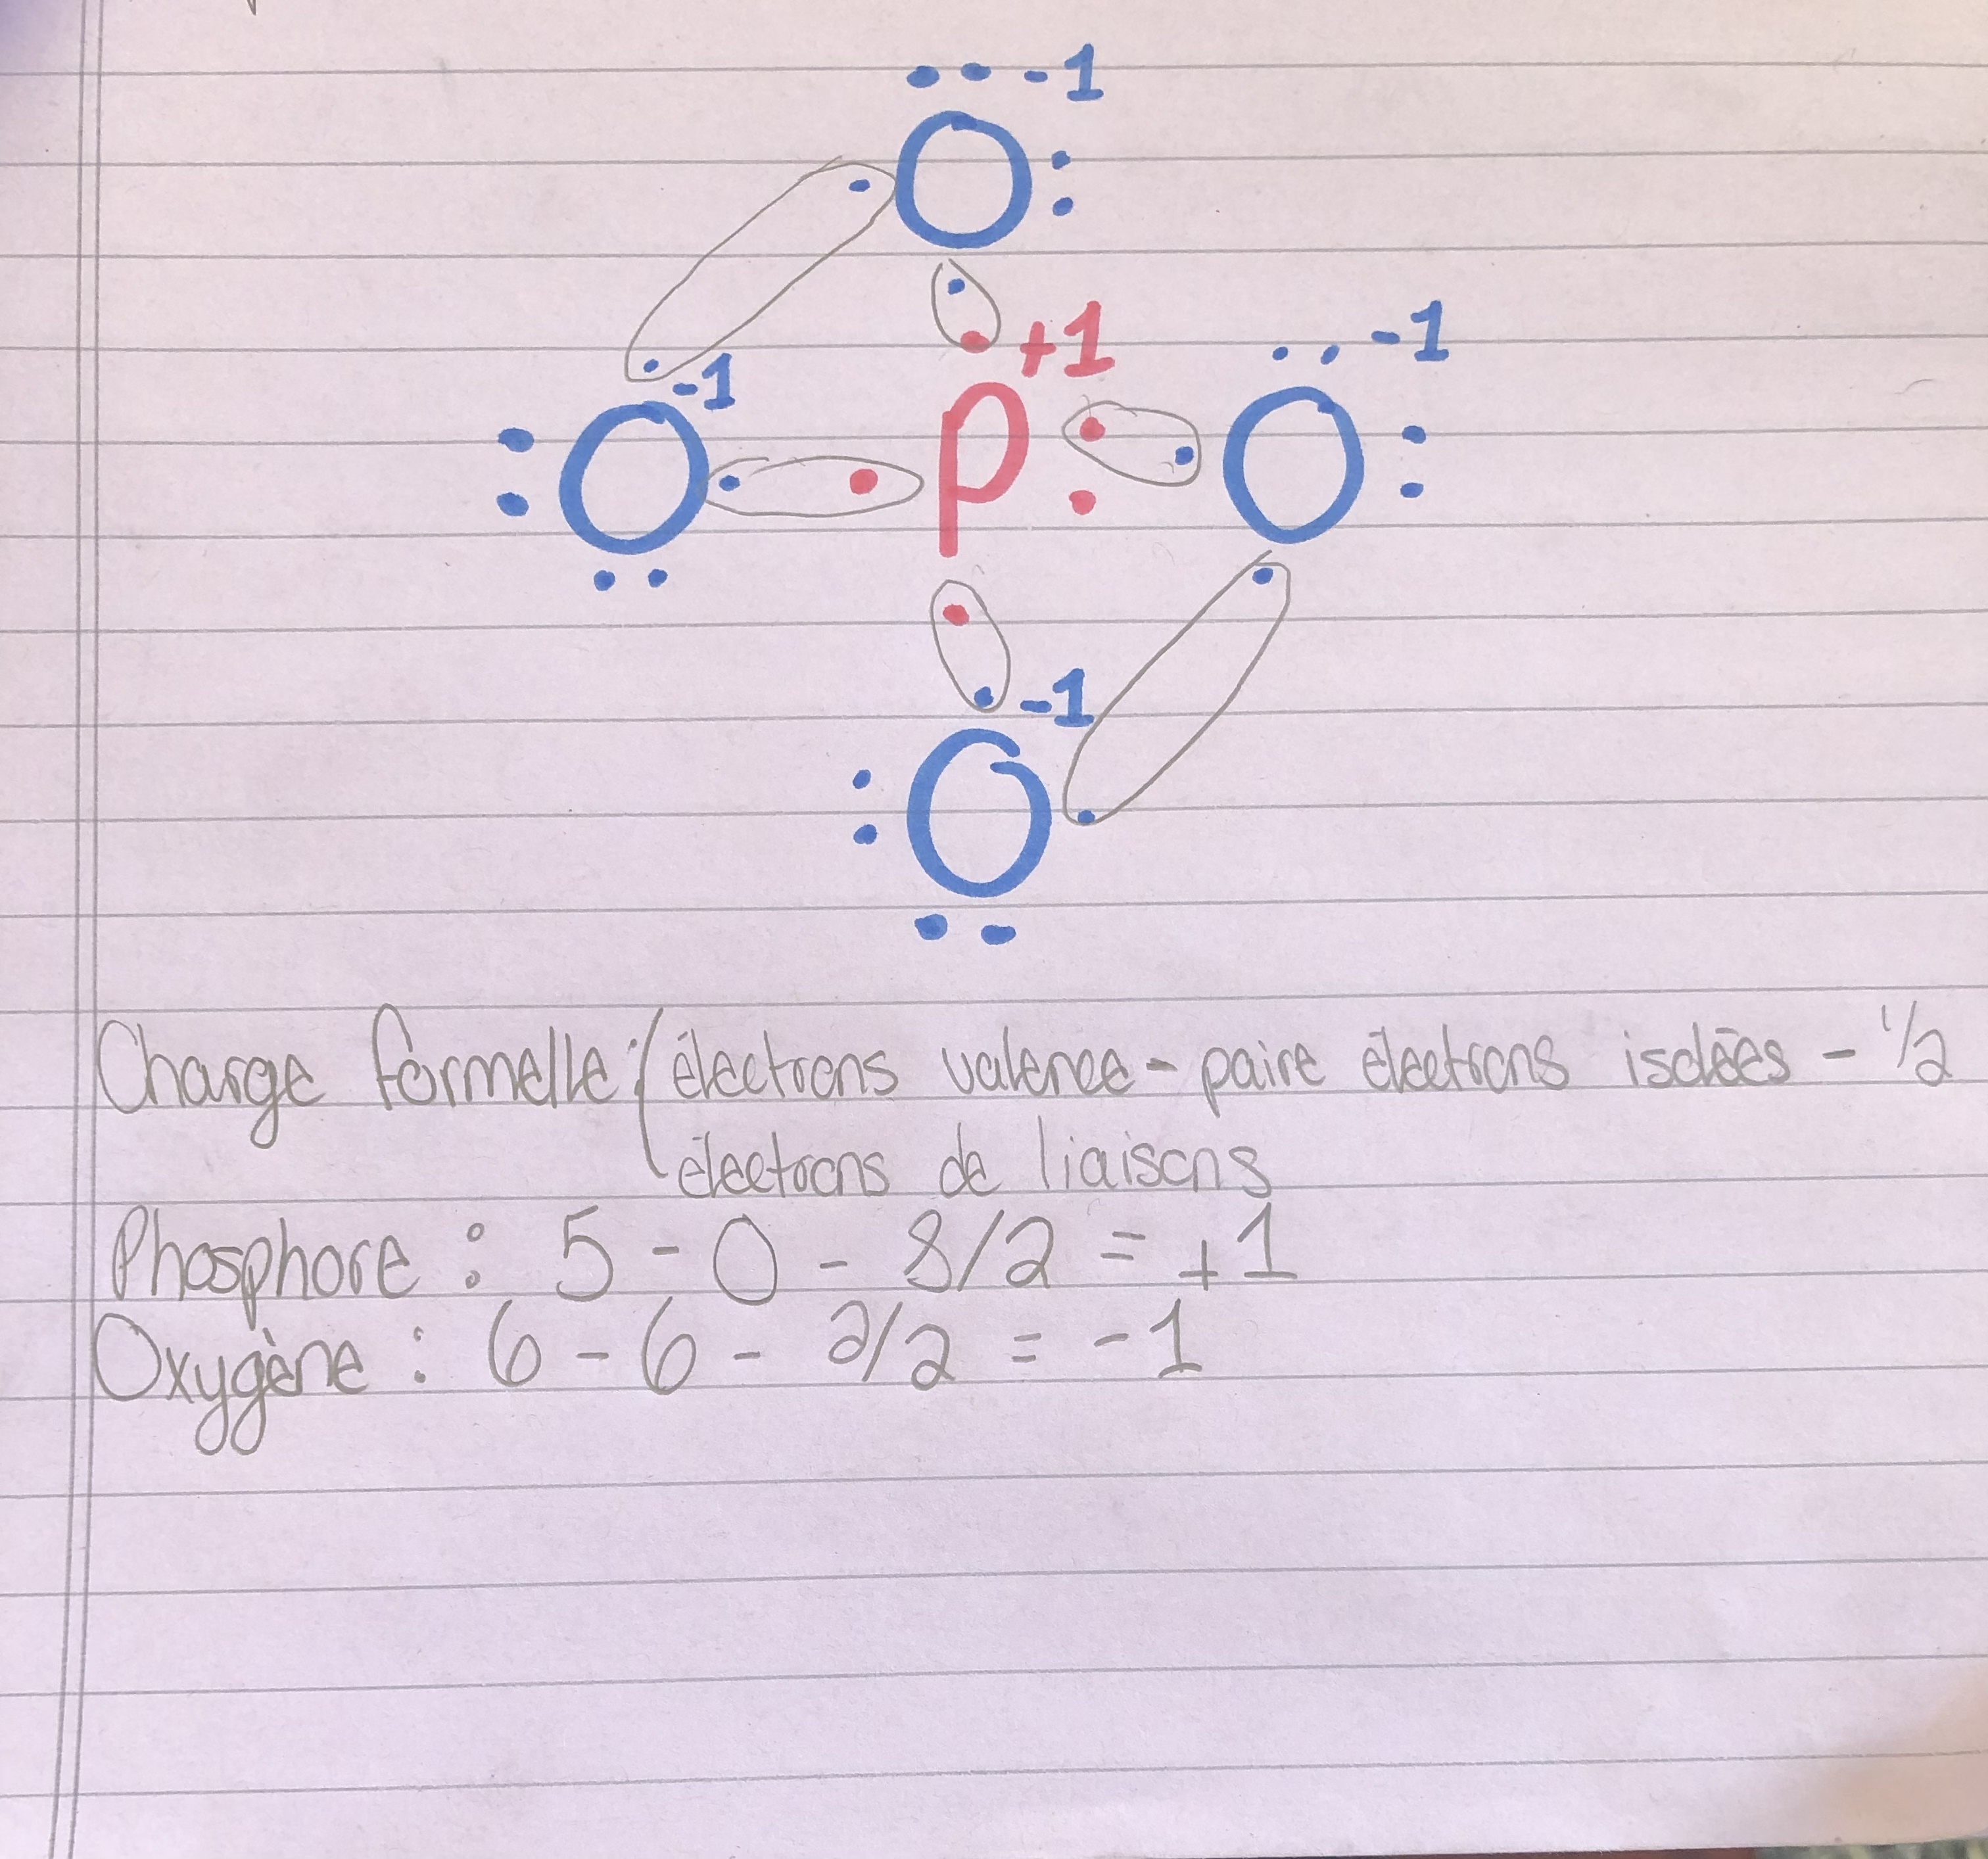 -1
O
+1
-1
-1
O
P
O
-1
O
Charge formelle : ( électrons valence - paire électrons isolées - 1/2
électrons de liaisons
Phosphore : 5 - 0 - 8/2 = +1
Oxygène : 6 - 6 - 2/2 = -1